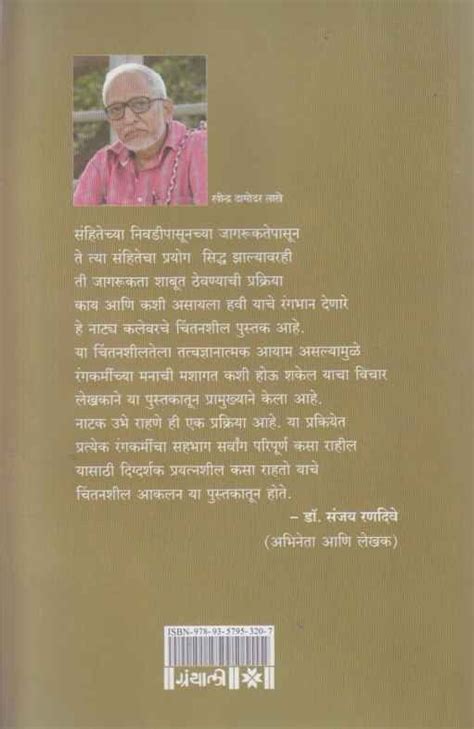 रवीन्द्र दामोदर लाखे
संहितेच्या निवडीपासूनच्या जागरूकतेपासून
ते त्या संहितेचा प्रयोग सिद्ध झाल्यावरही
ती जागरूकता शाबूत ठेवण्याची प्रक्रिया
काय आणि कशी असायला हवी याचे रंगभान देणारे
हे नाट्य कलेवरचे चिंतनशील पुस्तक आहे.
या चिंतनशीलतेला तत्वज्ञानात्मक आयाम असल्यामुळे
रंगकर्मीच्या मनाची मशागत कशी होऊ शकेल याचा विचार
लेखकाने या पुस्तकातून प्रामुख्याने केला आहे.
नाटक उभे राहणे ही एक प्रक्रिया आहे. या प्रकियेत
प्रत्येक रंगकर्मीचा सहभाग सर्वांग परिपूर्ण कसा राहील
यासाठी दिग्दर्शक प्रयत्नशील कसा राहतो याचे
चिंतनशील आकलन या पुस्तकातून होते.
– डॉ. संजय रणदिवे
(अभिनेता आणि लेखक)
ISBN-978-93-5795-320-7
ग्रंथाली